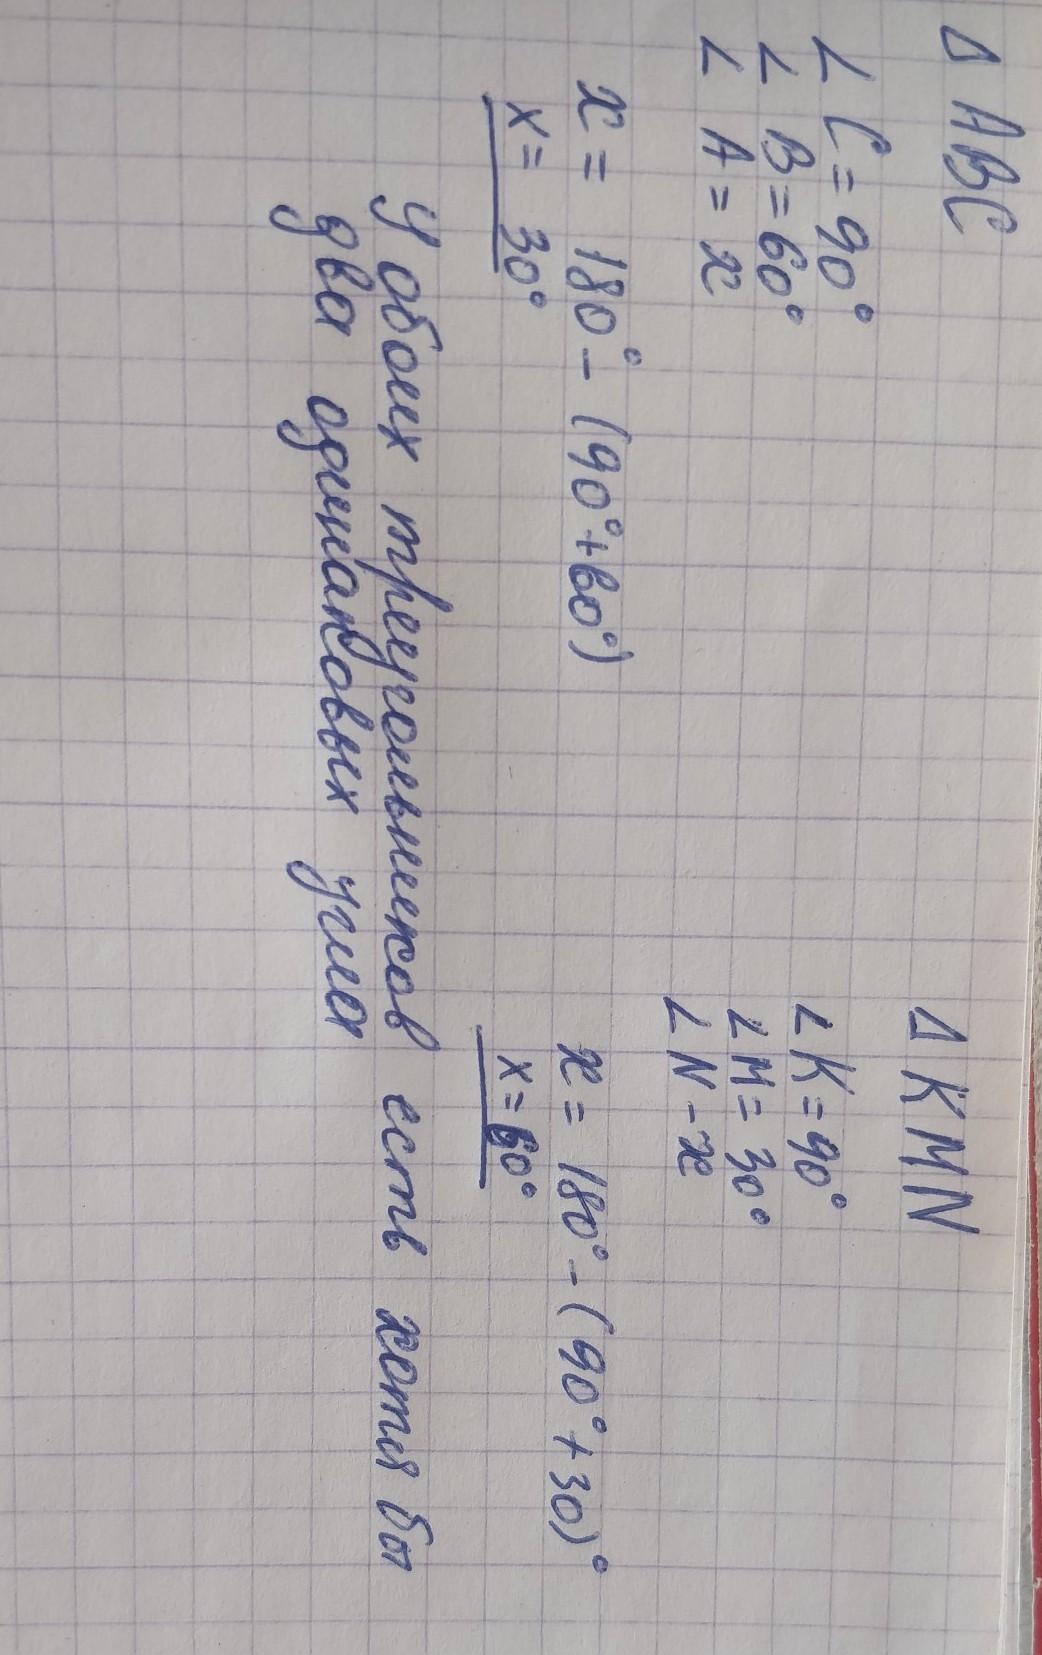 Δ ABC
∠ C = 90°
∠ B = 60°
∠ A = x
x = 180° - (90° + 60°)
x = 30°
Δ KMN
∠ K = 90°
∠ M = 30°
∠ N - x
x = 180° - (90° + 30)°
x = 60°
У обоих треугольников есть хотя бы
два одинаковых угла